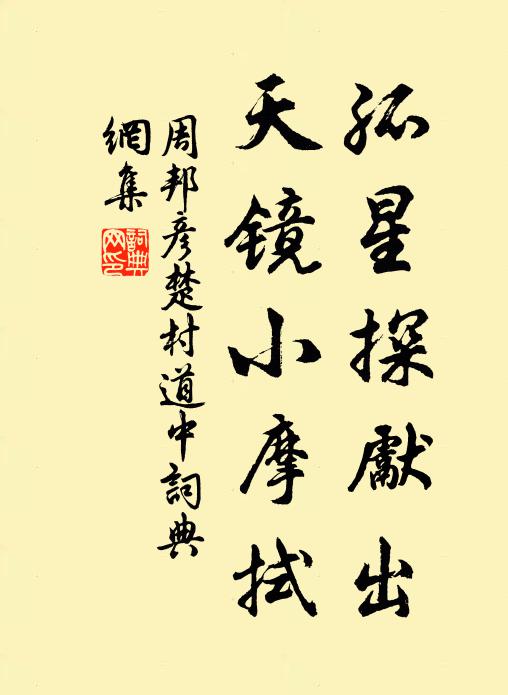 孤星探獻出
天镜小摩拭
周邦彦楚村道中詞典
網集
詞典
网印